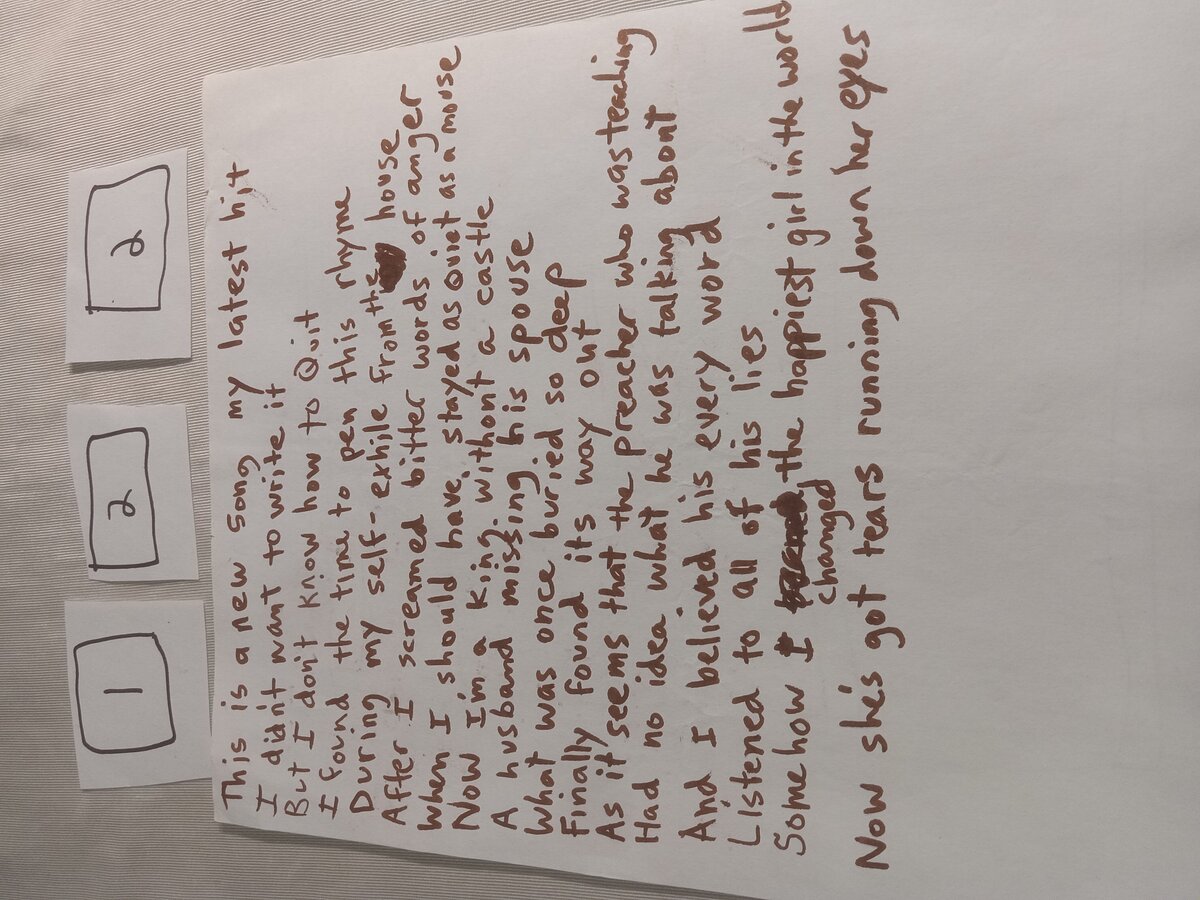 1
2
2
This is a new song my latest hit
I didn't want to write it
But I don't know how to Quit
I found the time to pen this rhyme
During my self-exhile from the house
After I screamed bitter words of anger
When I should have stayed as Quiet as a mouse
Now I'm a King without a castle
A husband missing his spouse
What was once buried so deep
Finally found its way out
As it seems that the preacher who was teaching
Had no idea what he was talking about
And I believed his every word
Listened to all of his lies
Somehow I changed the happiest girl in the world
Now she's got tears running down her eyes